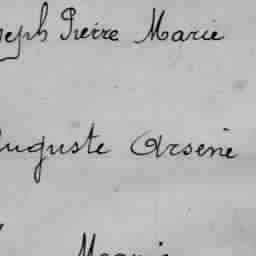 seph Pierre Marie
Auguste Arsène
Marie